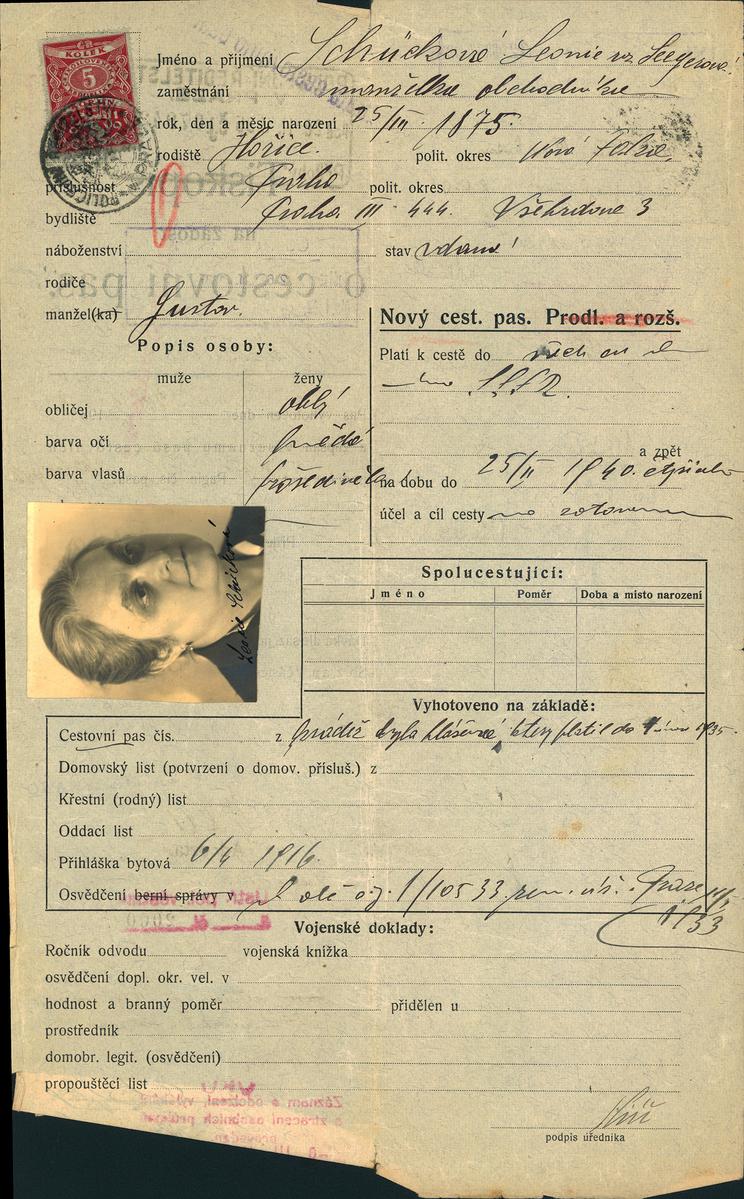 Kč
KOLEK
5
Jméno a příjmení Schücková Leonie roz Seegerová
zaměstnání manželka obchodníka
rok, den a měsíc narození 25/III 1875.
rodiště Hořice. polit. okres Nová Paka,
příslušnost Praha polit. okres
bydliště Praha III - 444. Všehrdova 3
náboženství stav vdaná
rodiče
manžel(ka) Gustav.
Nový cest. pas. Prodl. a rozš.
Popis osoby:
Platí k cestě do všech
SSSR.
muže ženy
obličej oblý
barva očí hnědé
barva vlasů prošedivělé
a zpět
na dobu do 25/II 1940.
účel a cíl cesty na zotavenou
Leonie Schücková
Spolucestující:
Jméno Poměr Doba a místo narození
Vyhotoveno na základě:
Cestovní pas čís. z byla hlášena, který platil do února 1935.
Domovský list (potvrzení o domov. přísluš.) z
Křestní (rodný) list
Oddací list
Přihláška bytová 6/4 1916.
Osvědčení berní správy v čj. 1/10533 Praze
1933
Vojenské doklady:
Ročník odvodu vojenská knížka
osvědčení dopl. okr. vel. v
hodnost a branný poměr přidělen u
prostředník
domobr. legit. (osvědčení)
propouštěcí list
podpis úředníka